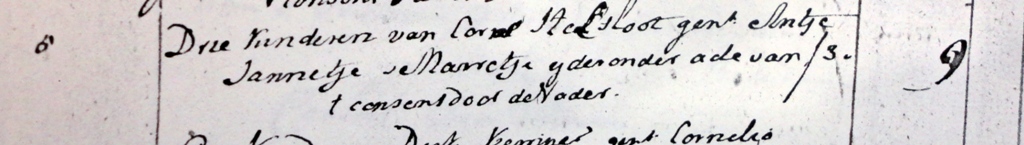 6 Drie Kinderen van Corn Helsloot gent Antje
Jannetje & Marretje yder onder acte van / 3. 9
t consens door de Vader.
Dirk gent Cornelis